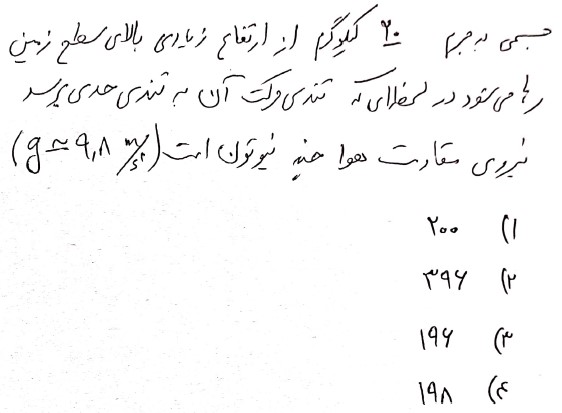 جسمی به جرم ۲۰ کیلوگرم از ارتفاع زیادی بالای سطح زمین
رها می‌شود در لحظه‌ای که تندی حرکت آن به تندی حدی برسد
نیروی مقاومت هوا چند نیوتون است (g ≃ ۹٫۸ m/s²)
۱) ۲۰۰
۲) ۳۹۶
۳) ۱۹۶
۴) ۱۹۸